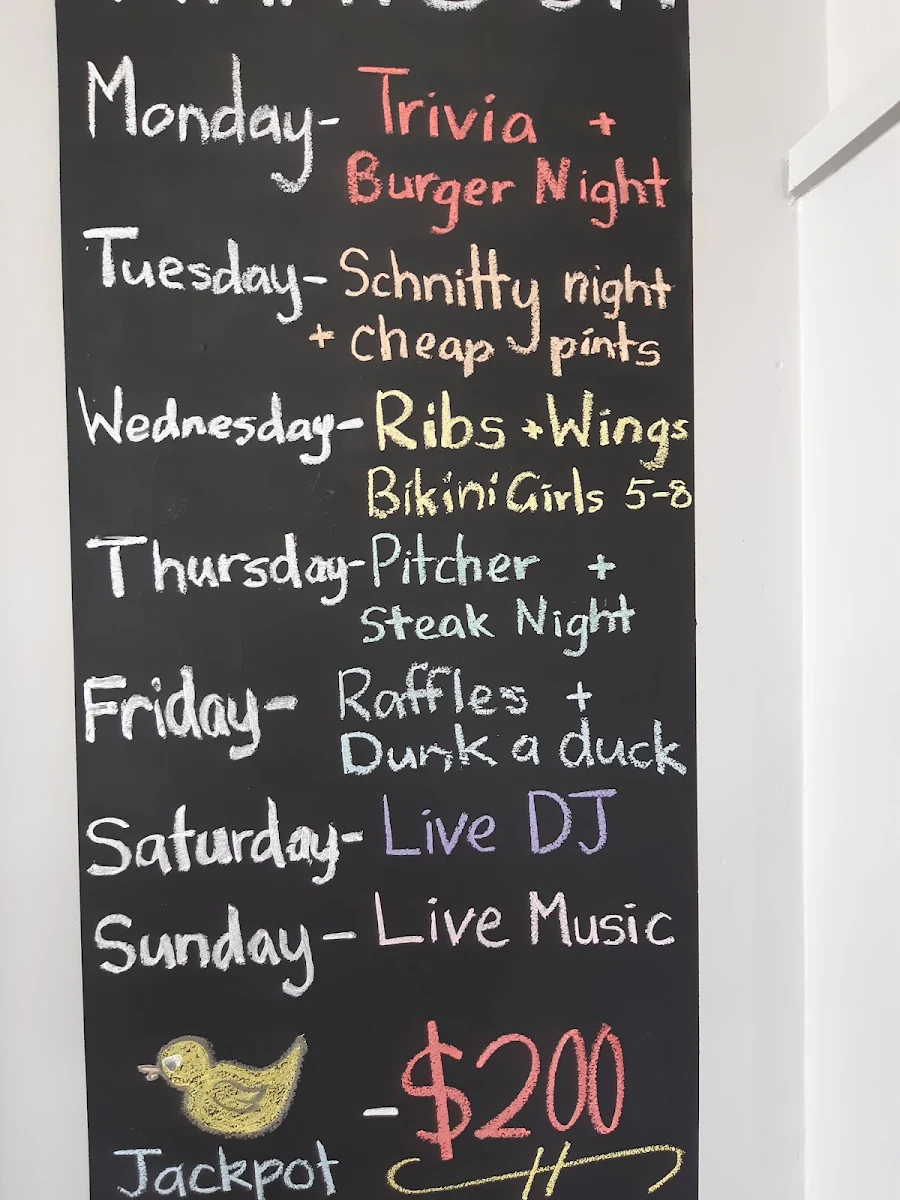 Monday- Trivia +
Burger Night
Tuesday- Schnitty night
+ cheap pints
Wednesday- Ribs + Wings
Bikini Girls 5-8
Thursday- Pitcher +
Steak Night
Friday- Raffles +
Dunk a duck
Saturday- Live DJ
Sunday- Live Music
- $200
Jackpot